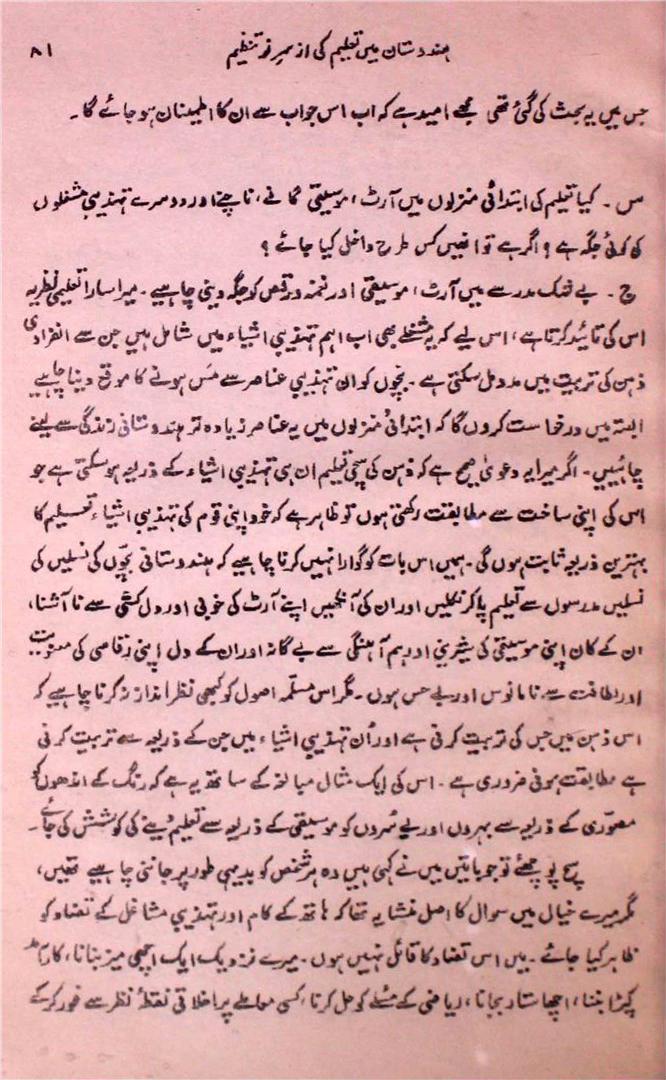 ہندوستان میں تعلیم کی از سرِ نو تنظیم
۸۱
جس میں یہ بحث کی گئی تھی مجھے امید ہے کہ اب اس جواب سے ان کا اطمینان ہو جائے گا۔
س۔ کیا تعلیم کی ابتدائی منزلوں میں آرٹ، موسیقی گانے، ناچنے اور دوسرے تہذیبی مشغلوں
کی کوئی جگہ ہے؟ اگر ہے تو انھیں کس طرح داخل کیا جائے؟
ج۔ بے شک مدرسے میں آرٹ، موسیقی اور نغمہ و رقص کو جگہ دینی چاہیے۔ میرا سارا تعلیمی نظریہ
اس کی تائید کرتا ہے، اس لیے کہ یہ مشغلے بھی اب اہم تہذیبی اشیاء میں شامل ہیں جن سے انفرادی
ذہن کی تربیت میں مدد مل سکتی ہے۔ بچّوں کو ان تہذیبی عناصر سے مَس ہونے کا موقع دینا چاہیے
البتہ میں درخواست کروں گا کہ ابتدائی منزلوں میں یہ عناصر زیادہ تر ہندوستانی زندگی سے لینے
چاہییں۔ اگر میرا یہ دعویٰ صحیح ہے کہ ذہن کی سچّی تعلیم ان ہی تہذیبی اشیاء کے ذریعہ ہو سکتی ہے جو
اس کی اپنی ساخت سے مطابقت رکھتی ہوں تو ظاہر ہے کہ خود اپنی قوم کی تہذیبی اشیاء تعلیم کا
بہترین ذریعہ ثابت ہوں گی۔ ہمیں اس بات کو گوارا نہیں کرنا چاہیے کہ ہندوستانی بچّوں کی نسلیں کی
نسلیں مدرسوں سے تعلیم پا کر نکلیں اور ان کی آنکھیں اپنے آرٹ کی خوبی اور دل کشی سے نا آشنا،
ان کے کان اپنی موسیقی کی شیرینی اور ہم آہنگی سے بے گانہ اور ان کے دل اپنی رقاصی کی معنویت
اور لطافت سے نامانوس اور بے حس ہوں۔ مگر اس مسلّمہ اصول کو کبھی نظر انداز نہ کرنا چاہیے کہ
اس ذہن میں جس کی تربیت کرنی ہے اور اُن تہذیبی اشیاء میں جن کے ذریعہ سے تربیت کرنی
ہے مطابقت ہونی ضروری ہے۔ اس کی ایک مثال مبالغہ کے ساتھ یہ ہے کہ رنگ کے اندھوں کو
مصوّری کے ذریعہ سے بہروں اور بے سُروں کو موسیقی کے ذریعہ سے تعلیم دینے کی کوشش کی جائے۔
سچ پوچھئے تو جو باتیں میں نے کہی ہیں وہ ہر شخص کو بدیہی طور پر جاننی چاہیے تھیں،
مگر میرے خیال میں سوال کا اصل منشا یہ تھا کہ ہاتھ کے کام اور تہذیبی مشاغل کے تضاد کو
ظاہر کیا جائے۔ میں اس تضاد کا قائل نہیں ہوں۔ میرے نزدیک ایک اچھی میز بنانا، کارآمد
کپڑا بننا، اچھا ستار بجانا، ریاضی کے مسئلے کو حل کرنا، کسی معاملے پر اخلاقی نقطۂ نظر سے غور کر کے